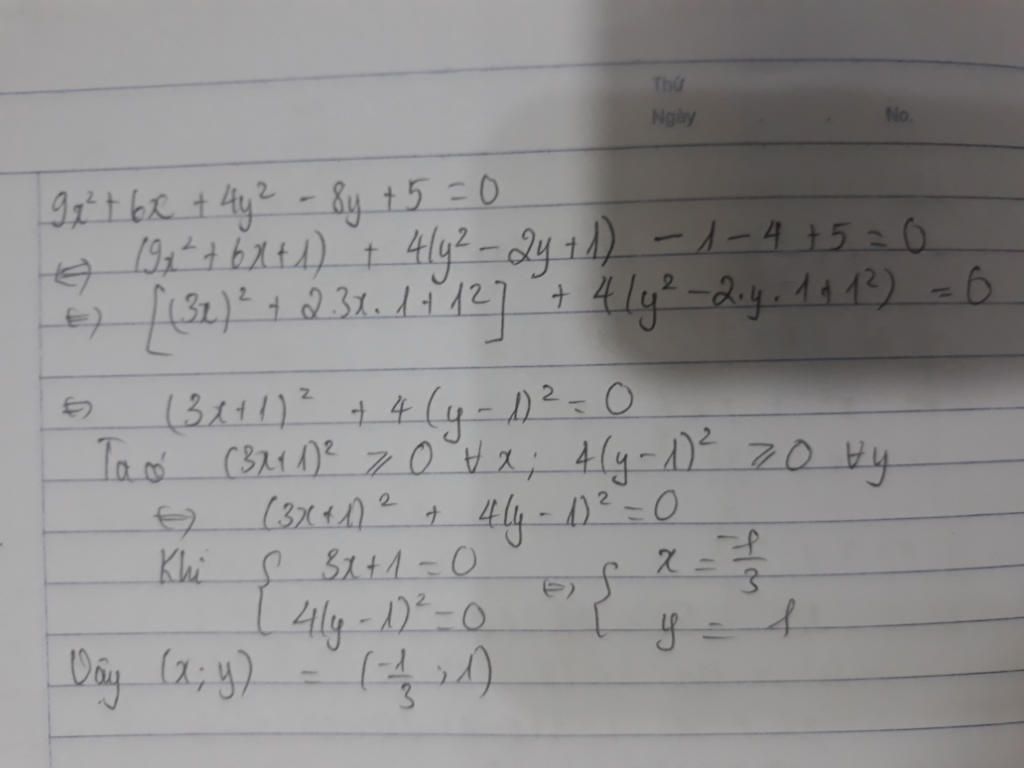 Thứ
Ngày . . No.
9x² + 6x + 4y² - 8y + 5 = 0
⇔ (9x² + 6x + 1) + 4(y² - 2y + 1) - 1 - 4 + 5 = 0
⇔ [(3x)² + 2.3x.1 + 1²] + 4(y² - 2.y.1 + 1²) = 0
⇔ (3x+1)² + 4(y-1)² = 0
Ta có (3x+1)² ⩾ 0 ∀x; 4(y-1)² ⩾ 0 ∀y
⇔ (3x+1)² + 4(y-1)² = 0
Khi { 3x+1 = 0 ⇔ { x = -1/3
4(y-1)² = 0 y = 1
Vậy (x; y) = (-1/3; 1)